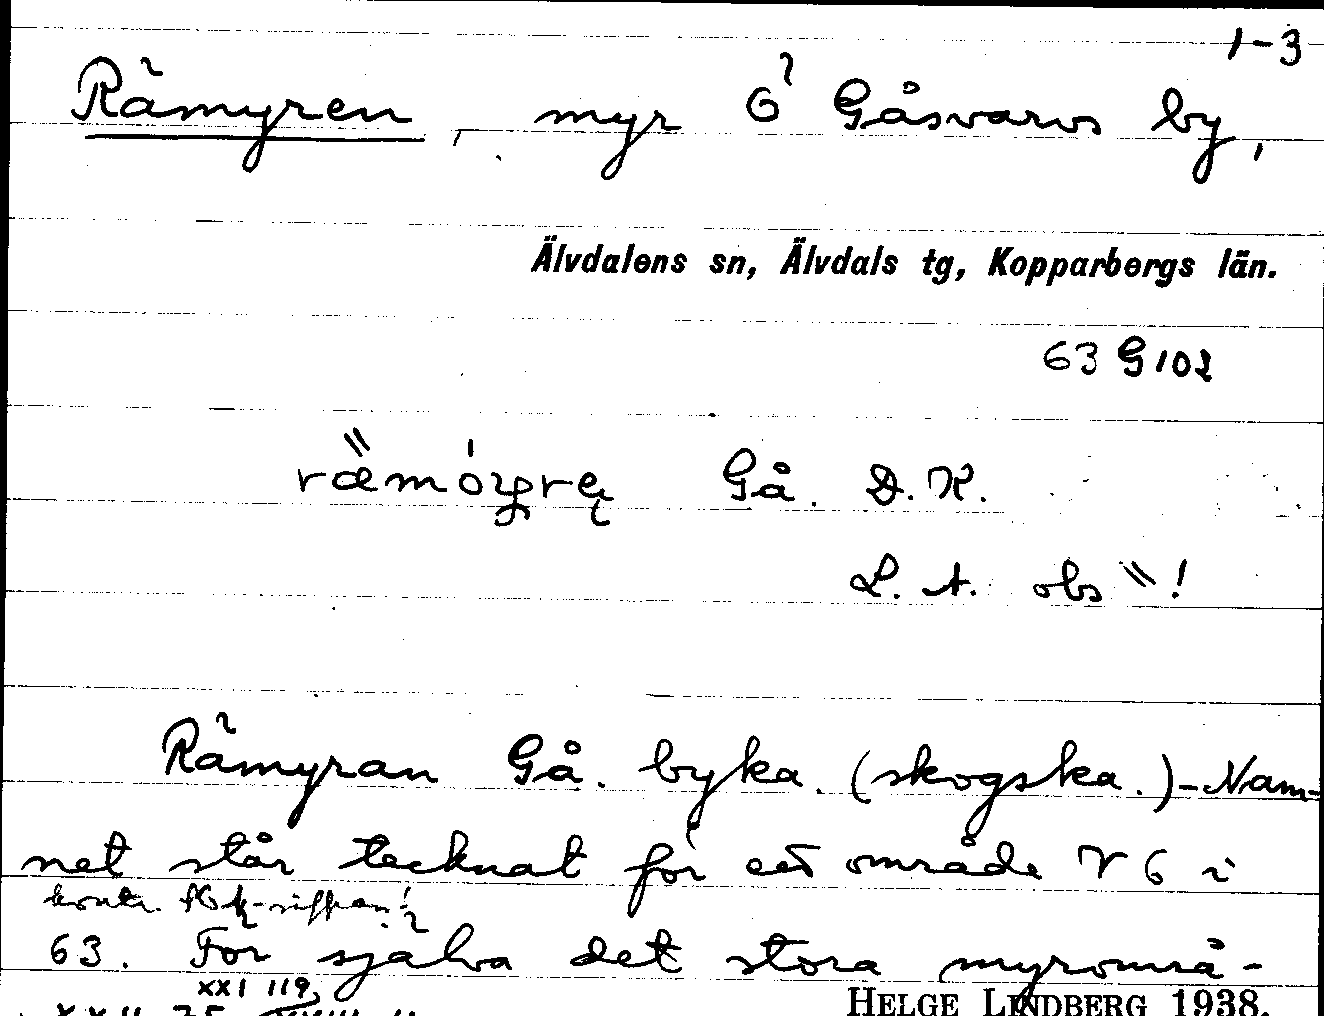 1-3
Rämyren, myr Ö Gåsvarvs by,
Älvdalens sn, Älvdals tg, Kopparbergs län.
63 G102
Gå. D.K.
L. A. obs !
Rämyran Gå. byka. (skogska.) - Nam-
net står tecknat för ett område V 6 i
63. För själva det stora myrområ-
XXI 119,
HELGE LINDBERG 1938.